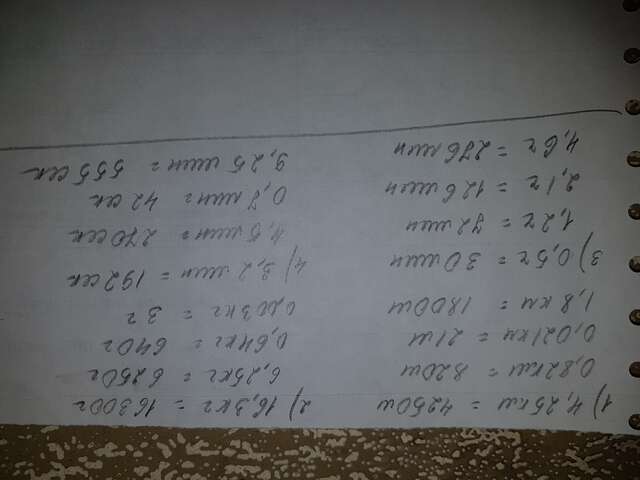 1) 4,25км = 4250м
0,82км = 820м
0,021км = 21м
1,8 км = 1800м
2) 16,3кг = 16300г
6,25кг = 6250г
0,64кг = 640г
0,003кг = 3г
3) 0,5ч = 30мин
1,2ч = 72мин
2,1ч = 126мин
4,6ч = 276мин
4) 3,2мин = 192сек
4,5мин = 270сек
0,7мин = 42сек
9,25мин = 555сек